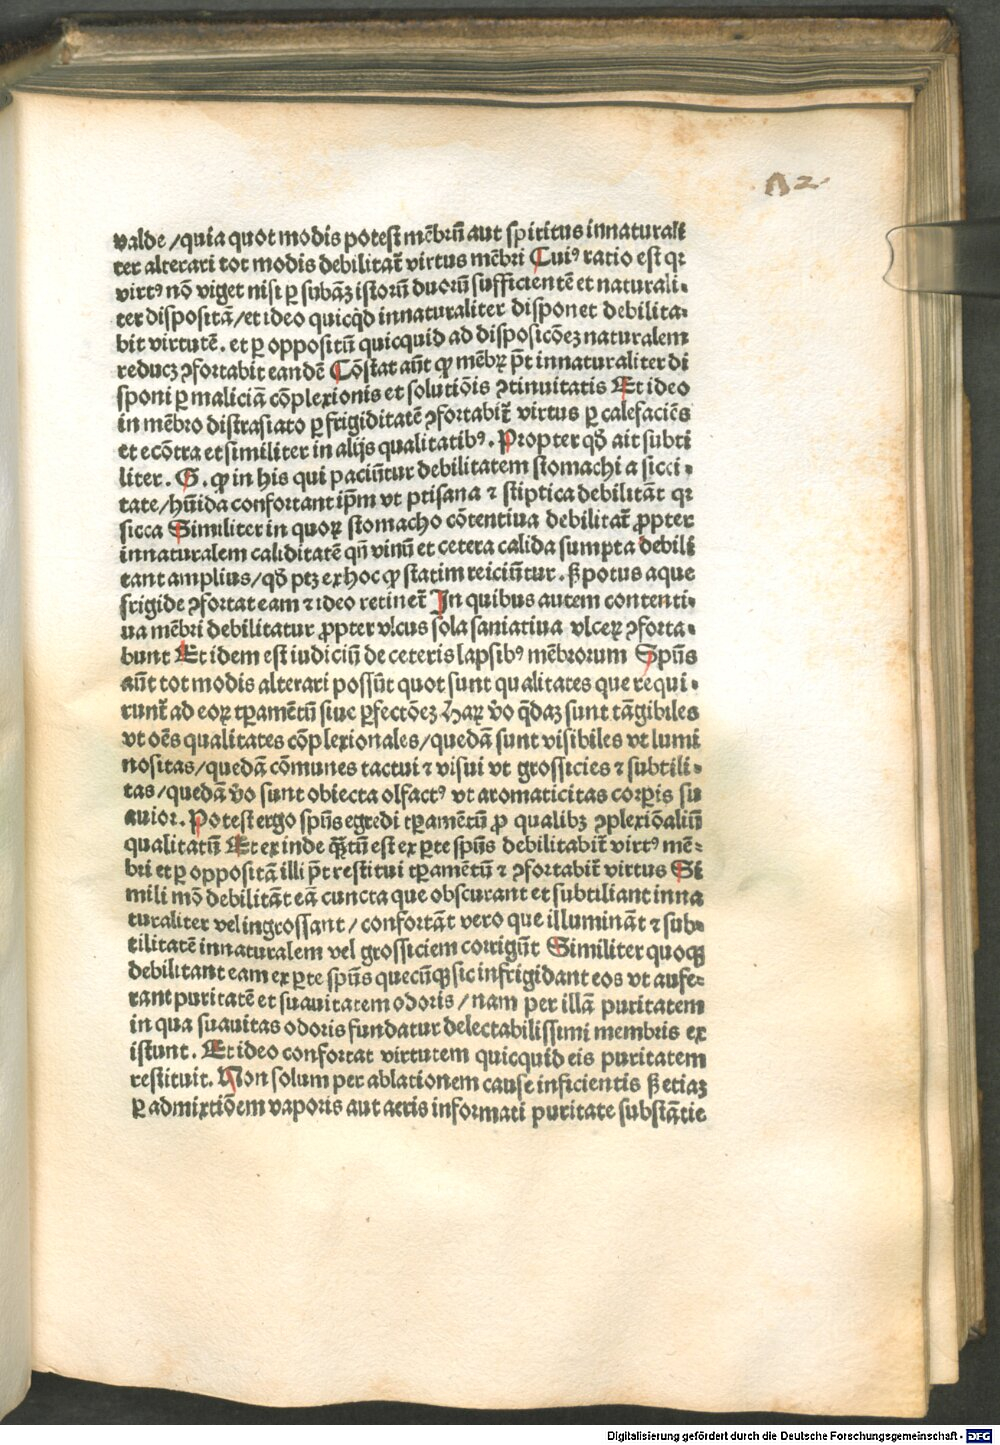 valde /quia quot modis potest mēbrū aut spiritus innaturali
ter alterari tot modis debilitat̄ virtus mēbri Cuiꝰ ratio est qꝛ
virtꝰ nō viget nisi ꝑ subāꝫ istoꝝ duorū sufficientē et naturali⸗
ter dispositā/et ideo quicqd innaturaliter disponet debilita⸗
bit virtutē. et ꝑ oppositū quicquid ad disposicōeꝫ naturalem
reducꝫ ꝯfortabit eandē Cōstat aūt ꝙ mēbꝝ p̄t innaturaliter di
sponi ꝑ maliciā cōplexionis et solutiōis ꝯtinuitatis Et ideo
in mēbro distrasiato ꝑ frigiditatē ꝯfortabit̄ virtus ꝑ calefaciēs
et ecōtra et similiter in alijs qualitatibꝰ. Propter qđ ait subti
liter. G. ꝙ in his qui paciūtur debilitatem stomachi a sicci⸗
tate/hūida confortant ip̄m vt ptisana ⁊ stiptica debilitāt qꝛ
sicca Similiter in quoꝝ stomacho cōtentiua debilitat̄ ꝓpter
innaturalem caliditatē qn̄ vinū et cetera calida sumpta debili
tant amplius/qđ ptꝫ ex hoc ꝙ statim reiciūtur. ß potus aque
frigide ꝯfortat eam ⁊ ideo retinet̄ In quibus autem contenti⸗
ua mēbri debilitatur ꝓpter vlcus sola saniatiua vlceꝝ ꝯforta⸗
bunt Et idem est iudiciū de ceteris lapsibꝰ mēbrorum Spūs
aūt tot modis alterari possūt quot sunt qualitates que requi⸗
runt̄ ad eoꝝ tꝑamētū siue ꝑfectōeꝫ Haꝝ v̄o q̄daꝫ sunt tāgibiles
vt oēs qualitates cōplexionales/quedā sunt visibiles vt lumi
nositas/quedā cōmunes tactui ⁊ visui vt grossicies ⁊ subtili⸗
tas/quedā v̄o sunt obiecta olfactꝰ vt aromaticitas corꝑis su
auior. Potest ergo spūs egredi tꝑamētū ꝓ qualibꝫ ꝯplexiōaliū
qualitatū Et ex inde qꝫtū est ex ꝑte spūs debilitabit̄ virtꝰ mē⸗
bri et ꝑ oppositā illi p̄t restitui tꝑamētū ⁊ ꝯfortabit̄ virtus Si
mili mō debilitāt eā cuncta que obscurant et subtiliant inna
turaliter vel ingrossant/confortāt vero que illumināt ⁊ sub⸗
tilitatē innaturalem vel grossiciem corrigūt Similiter quoqꝫ
debilitant eam ex ꝑte spūs quecūqꝫ sic infrigidant eos vt aufe⸗
rant puritatē et suauitatem odoris/nam per illā puritatem
in qua suauitas odoris fundatur delectabilissimi membris ex
istunt. Et ideo confortat virtutem quicquid eis puritatem
restituit. Non solum per ablationem cause inficientis ß etiaꝫ
ꝑ admixtiōem vaporis aut aeris informati puritate substātie
Digitalisierung gefördert durch die Deutsche Forschungsgemeinschaft - DFG